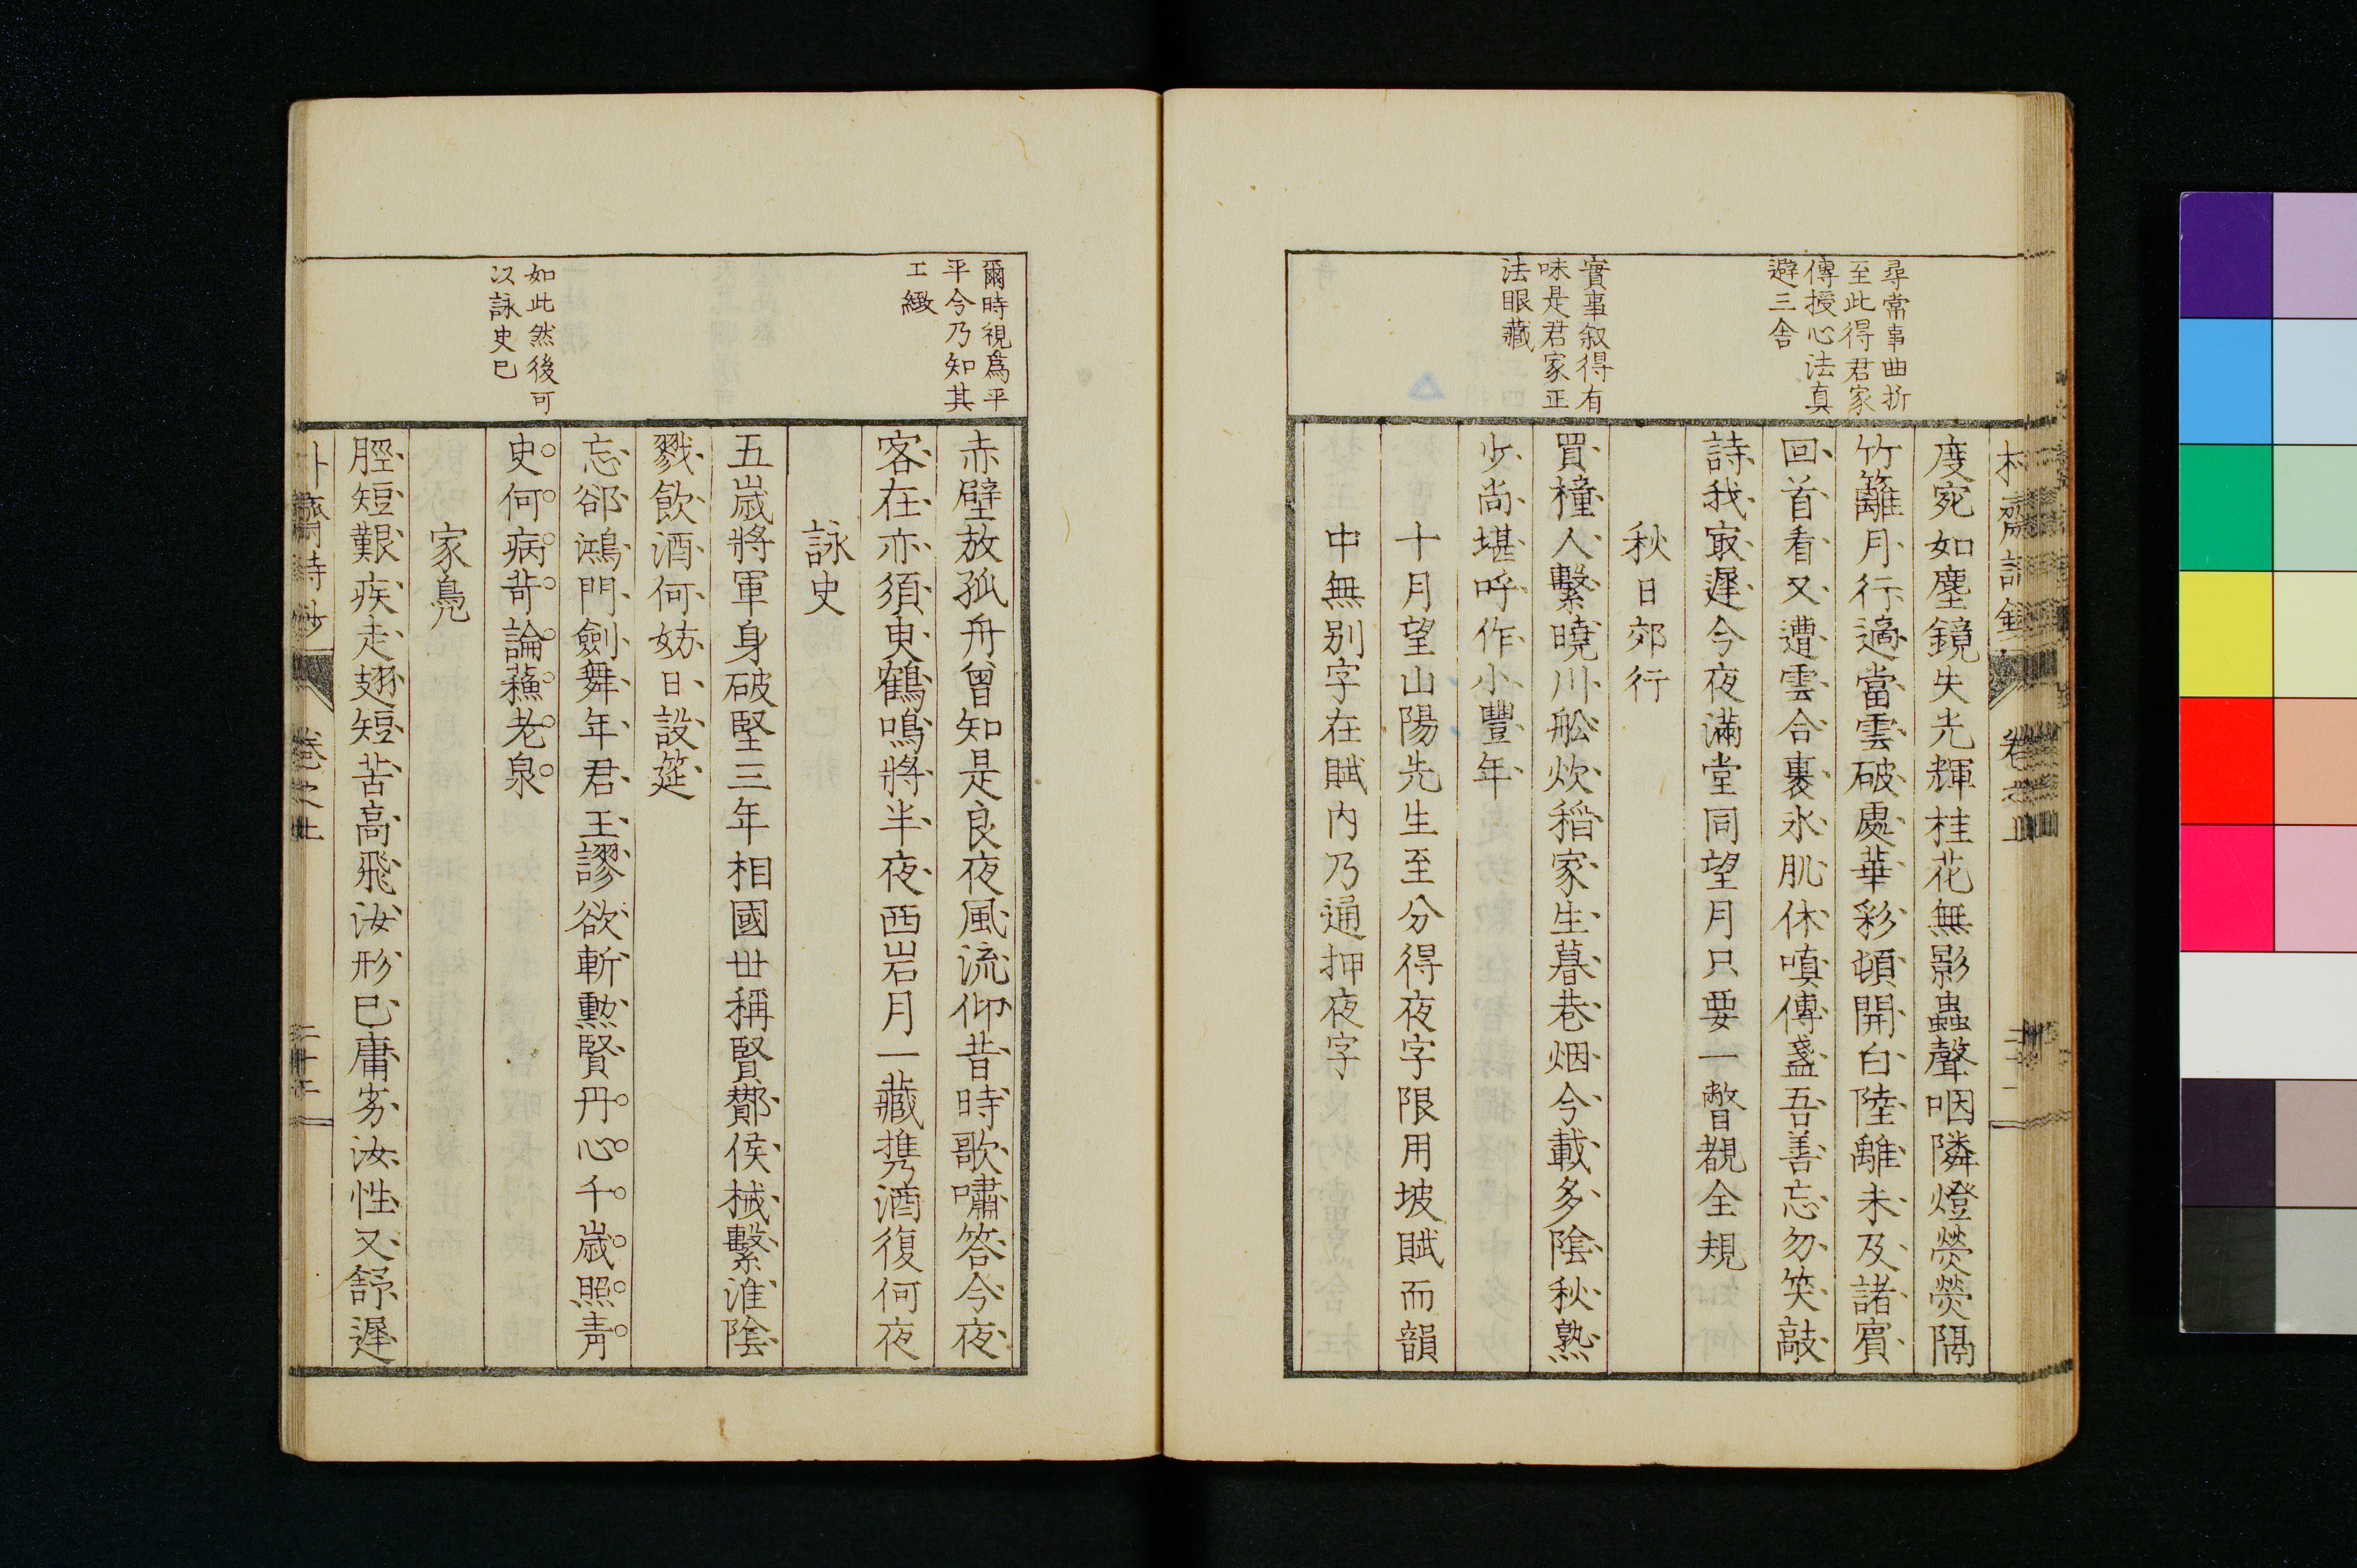 尋常事曲折
至此得君家
傳授心法真
避三舍
實事叙得有
味是君家正
法眼藏
度宛如塵鏡失光輝桂花無影蟲聲咽隣燈熒熒隔
竹籬月行過當雲破處華彩頓開白陸離未及諸賓
回首看又遭雲合裹氷肌休嗔傳盞吾善忘勿笑敲
詩我㝡遲今夜滿堂同望月只要一瞥覩全規
秋日郊行
買橦人繫曉川舩炊稻家生暮巷烟今載多陰秋熟
少尚堪呼作小豐年
十月望山陽先生至分得夜字限用坡賦而韻
中無別字在賦内乃通押夜字
爾時視爲平
平今乃知其
工緻
如此然後可
以詠史已
赤壁放孤舟曾知是良夜風流仰昔時歌嘯答今夜
客在亦須臾鶴鳴將半夜西岩月一藏携酒復何夜
詠史
五歳將軍身破堅三年相國丗稱賢酇侯械繫淮陰
戮飲酒何妨日設筵
忘卻鴻門劍舞年君王謬欲斬勲賢丹心千歳照青
史何病苛論蘓老泉
家鳧
脛短艱疾走翅短苦高飛汝形已庸劣汝性又舒遲
卷之上